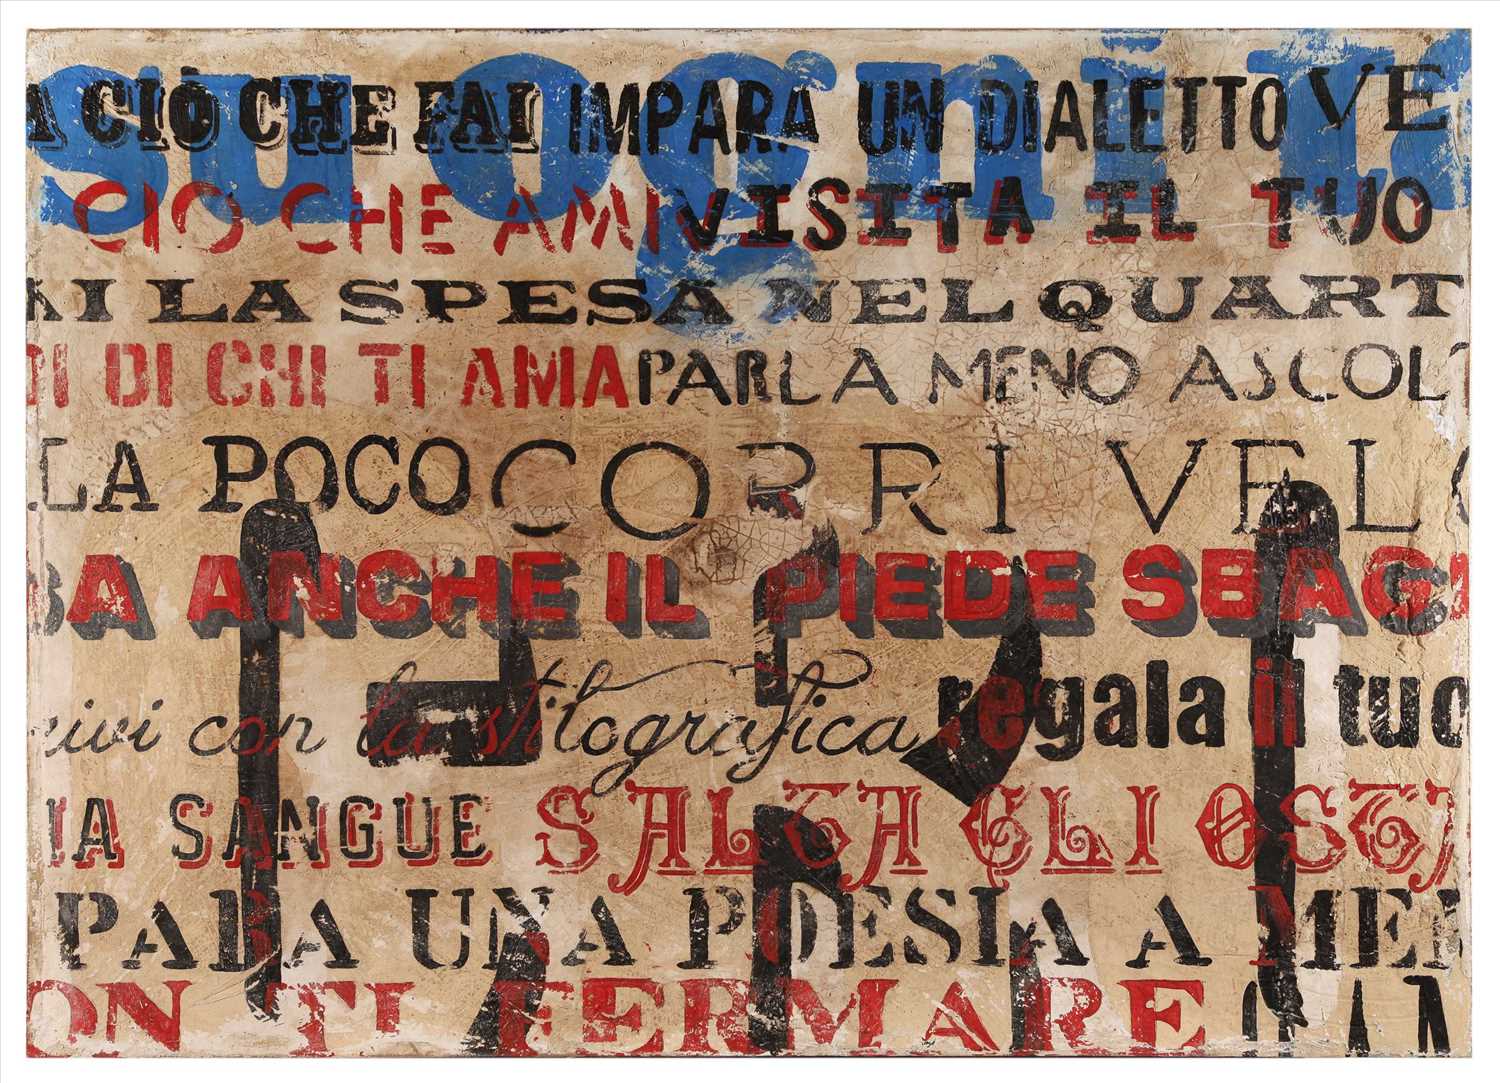 su ogni
A CIÒ CHE FAI IMPARA UN DIALETTO VE
CIO CHE AMI VISITA IL TUO
AI LA SPESA NEL QUART
DI CHI TI AMA PARLA MENO ASCOL
LA POCO CORRI VELO
BA ANCHE IL PIEDE SBAG
ivi con la stilografica regala il tuo
IA SANGUE SALTA GLI OSTA
PARA UNA POESIA A MEM
ON TI FERMARE